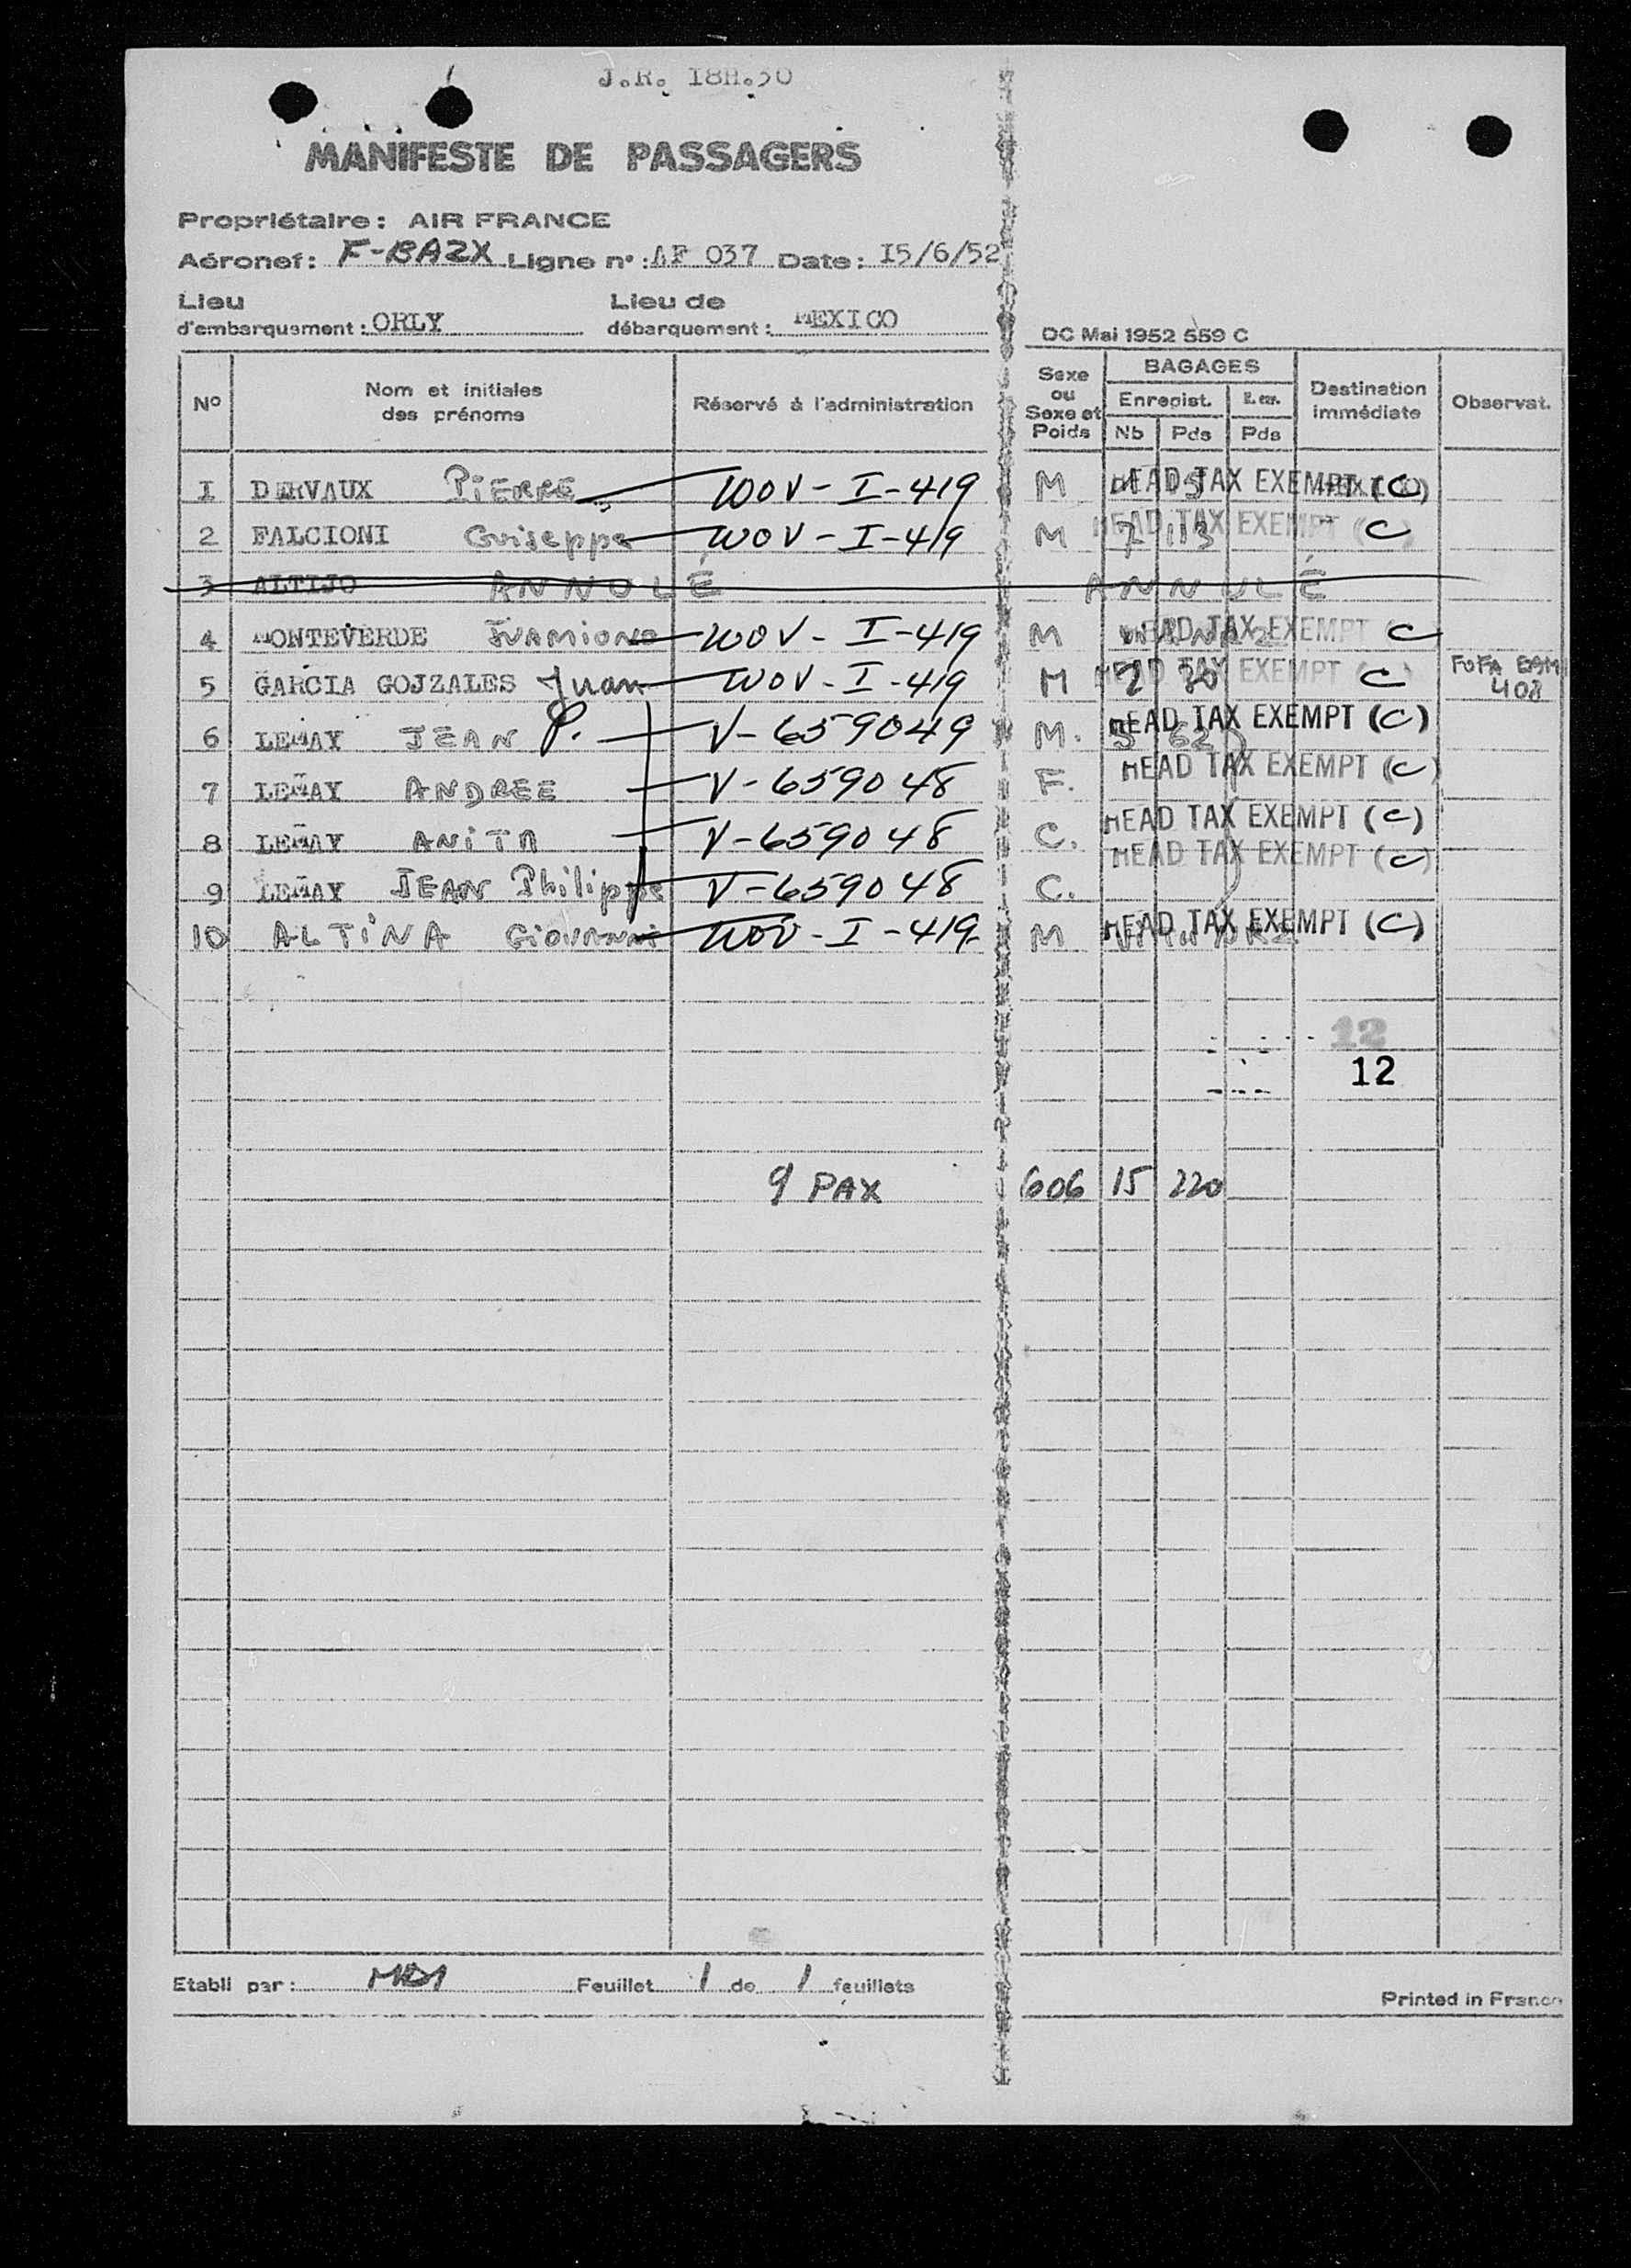 J.R. I8H.30
MANIFESTE DE PASSAGERS
Propriétaire: AIR FRANCE
Aéronef: F-BAZX Ligne n°: AF 037 Date: I5/6/52
Lieu d'embarquement: ORLY Lieu de débarquement: MEXICO
DC Mai 1952 559 C
N° Nom et initiales des prénoms Réservé à l'administration Sexe ou Sexe et Poids BAGAGES Enregist. Nb Pds Pds Destination immédiate Observat.
I DERVAUX PIERRE WOV-I-419 M HEAD TAX EXEMPT (C)
2 FALCIONI Guiseppe WOV-I-419 M 7 113 HEAD TAX EXEMPT C
3 ALTIJO ANNULÉ ANNULÉ
4 MONTEVERDE WOV-I-419 M HEAD TAX EXEMPT C
5 GARCIA GOJZALES Juan WOV-I-419 M 2 20 HEAD TAX EXEMPT C 408
6 LEMAY JEAN P. V-659049 M. 62 HEAD TAX EXEMPT (C)
7 LEMAY ANDREE V-659048 F. HEAD TAX EXEMPT (C)
8 LEMAY ANITA V-659048 C. HEAD TAX EXEMPT (C)
9 LEMAY JEAN Philippe V-659048 C. HEAD TAX EXEMPT (C)
10 ALTINA Giovanni WOV-I-419 M HEAD TAX EXEMPT (C)
12
12
9 PAX 606 15 220
Etabli par: Feuillet 1 de 1 feuillets
Printed in France